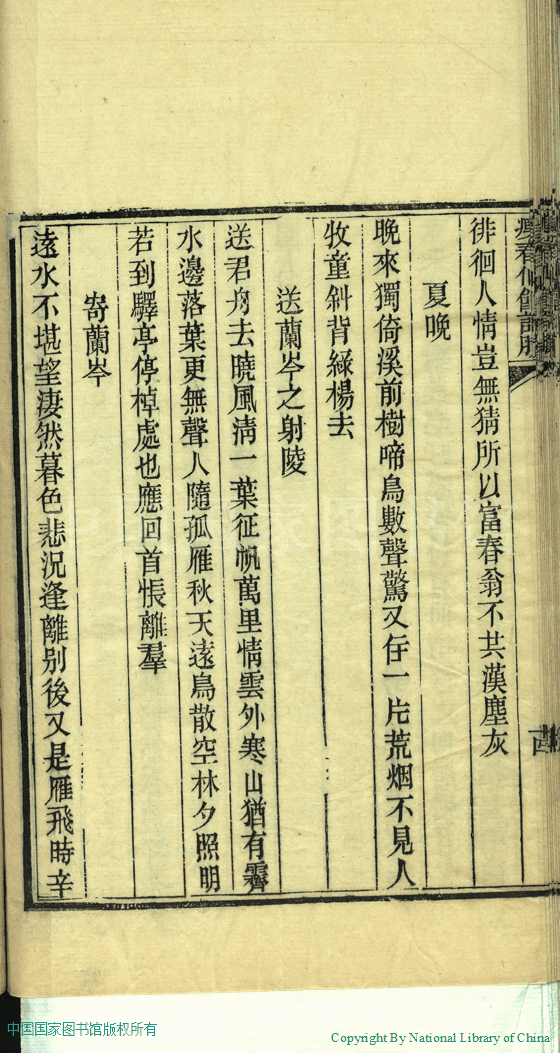 徘徊人情豈無猜所以富春翁不共漢塵灰
夏晚
晚來獨倚溪前樹啼鳥數聲驚又住一片荒烟不見人
牧童斜背綠楊去
送蘭岑之射陵
送君舟去曉風清一葉征帆萬里情雲外寒山猶有霽
水邊落葉更無聲人隨孤雁秋天遠鳥散空林夕照明
若到驛亭停棹處也應回首悵離羣
寄蘭岑
遠水不堪望淒然暮色悲況逢離别後又是雁飛時辛
中国国家图书馆版权所有
Copyright By National Library of China